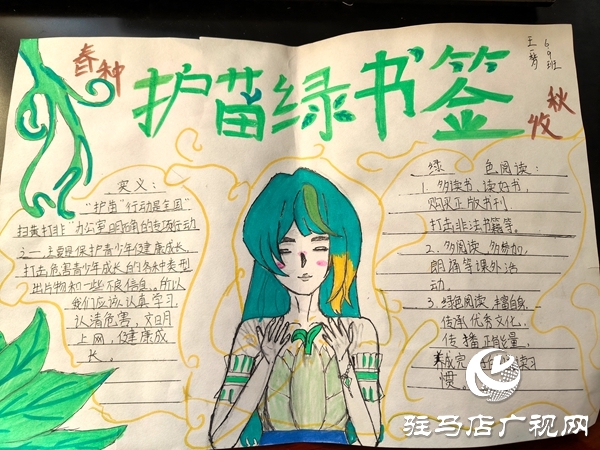 春种
护苗绿书签
6.9班
秋收
实义：
"护苗"行动是全国"
扫黄打非"办公室明确的专项行动
之一,主要目保护青少年健康成长,
打击危害青少年成长的各种类型
出片物和一些不良信息,所以
我们应该认真学习
认清危害,文明
上网,健康成
长。
绿色阅读：
1、多读书、读好书,
购买正版书刊
打击非法书籍等。
2、多阅读、多参加,
朗诵等课外活
动。
3、绿色阅读、播自身,
传承优秀文化,
传播正能量,
养成完
读习
惯
驻马店广视网